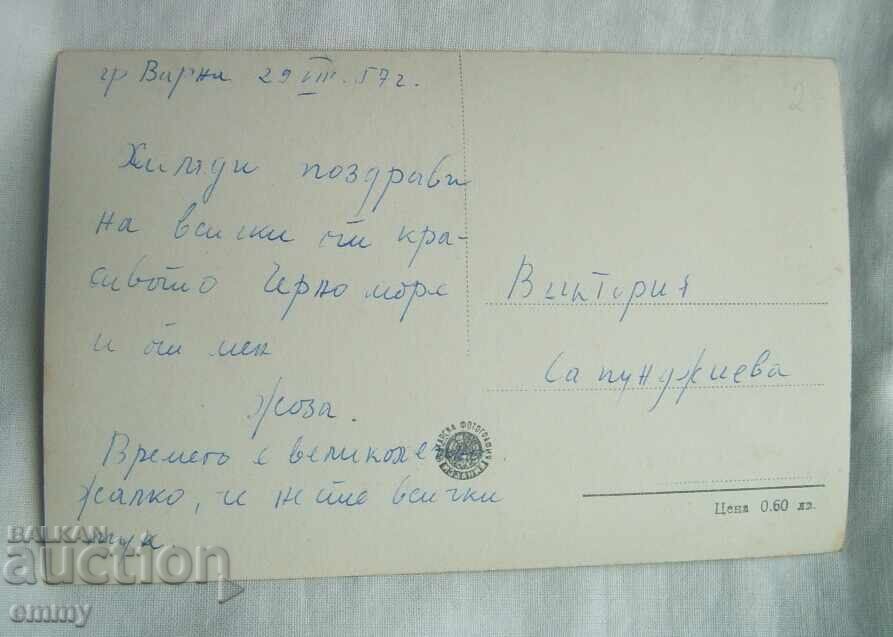 гр Варна 29 VIII. 57 г.
Хиляди поздрави
на всички от кра-
сивото Черно море
и от мен
Жоза.
Времето е великолепно.
Жалко, че не сте всички
тук.
Виктория
Сапунджиева
Цена 0.60 лв.
2
BALKAN
auction
emmy